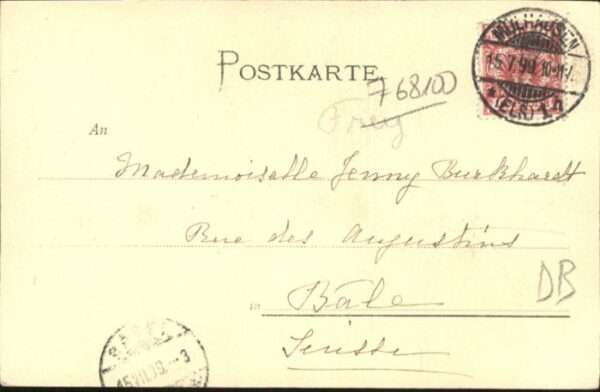 MÜLHAUSEN
15.7.99. 10-11V.
* (ELS) 1 h
POSTKARTE
768100
Frey
An
Mademoiselle Jenny Burkhardt
Rue des Augustins
in Bâle
DB
Suisse
BASEL
15.VII.99. 3